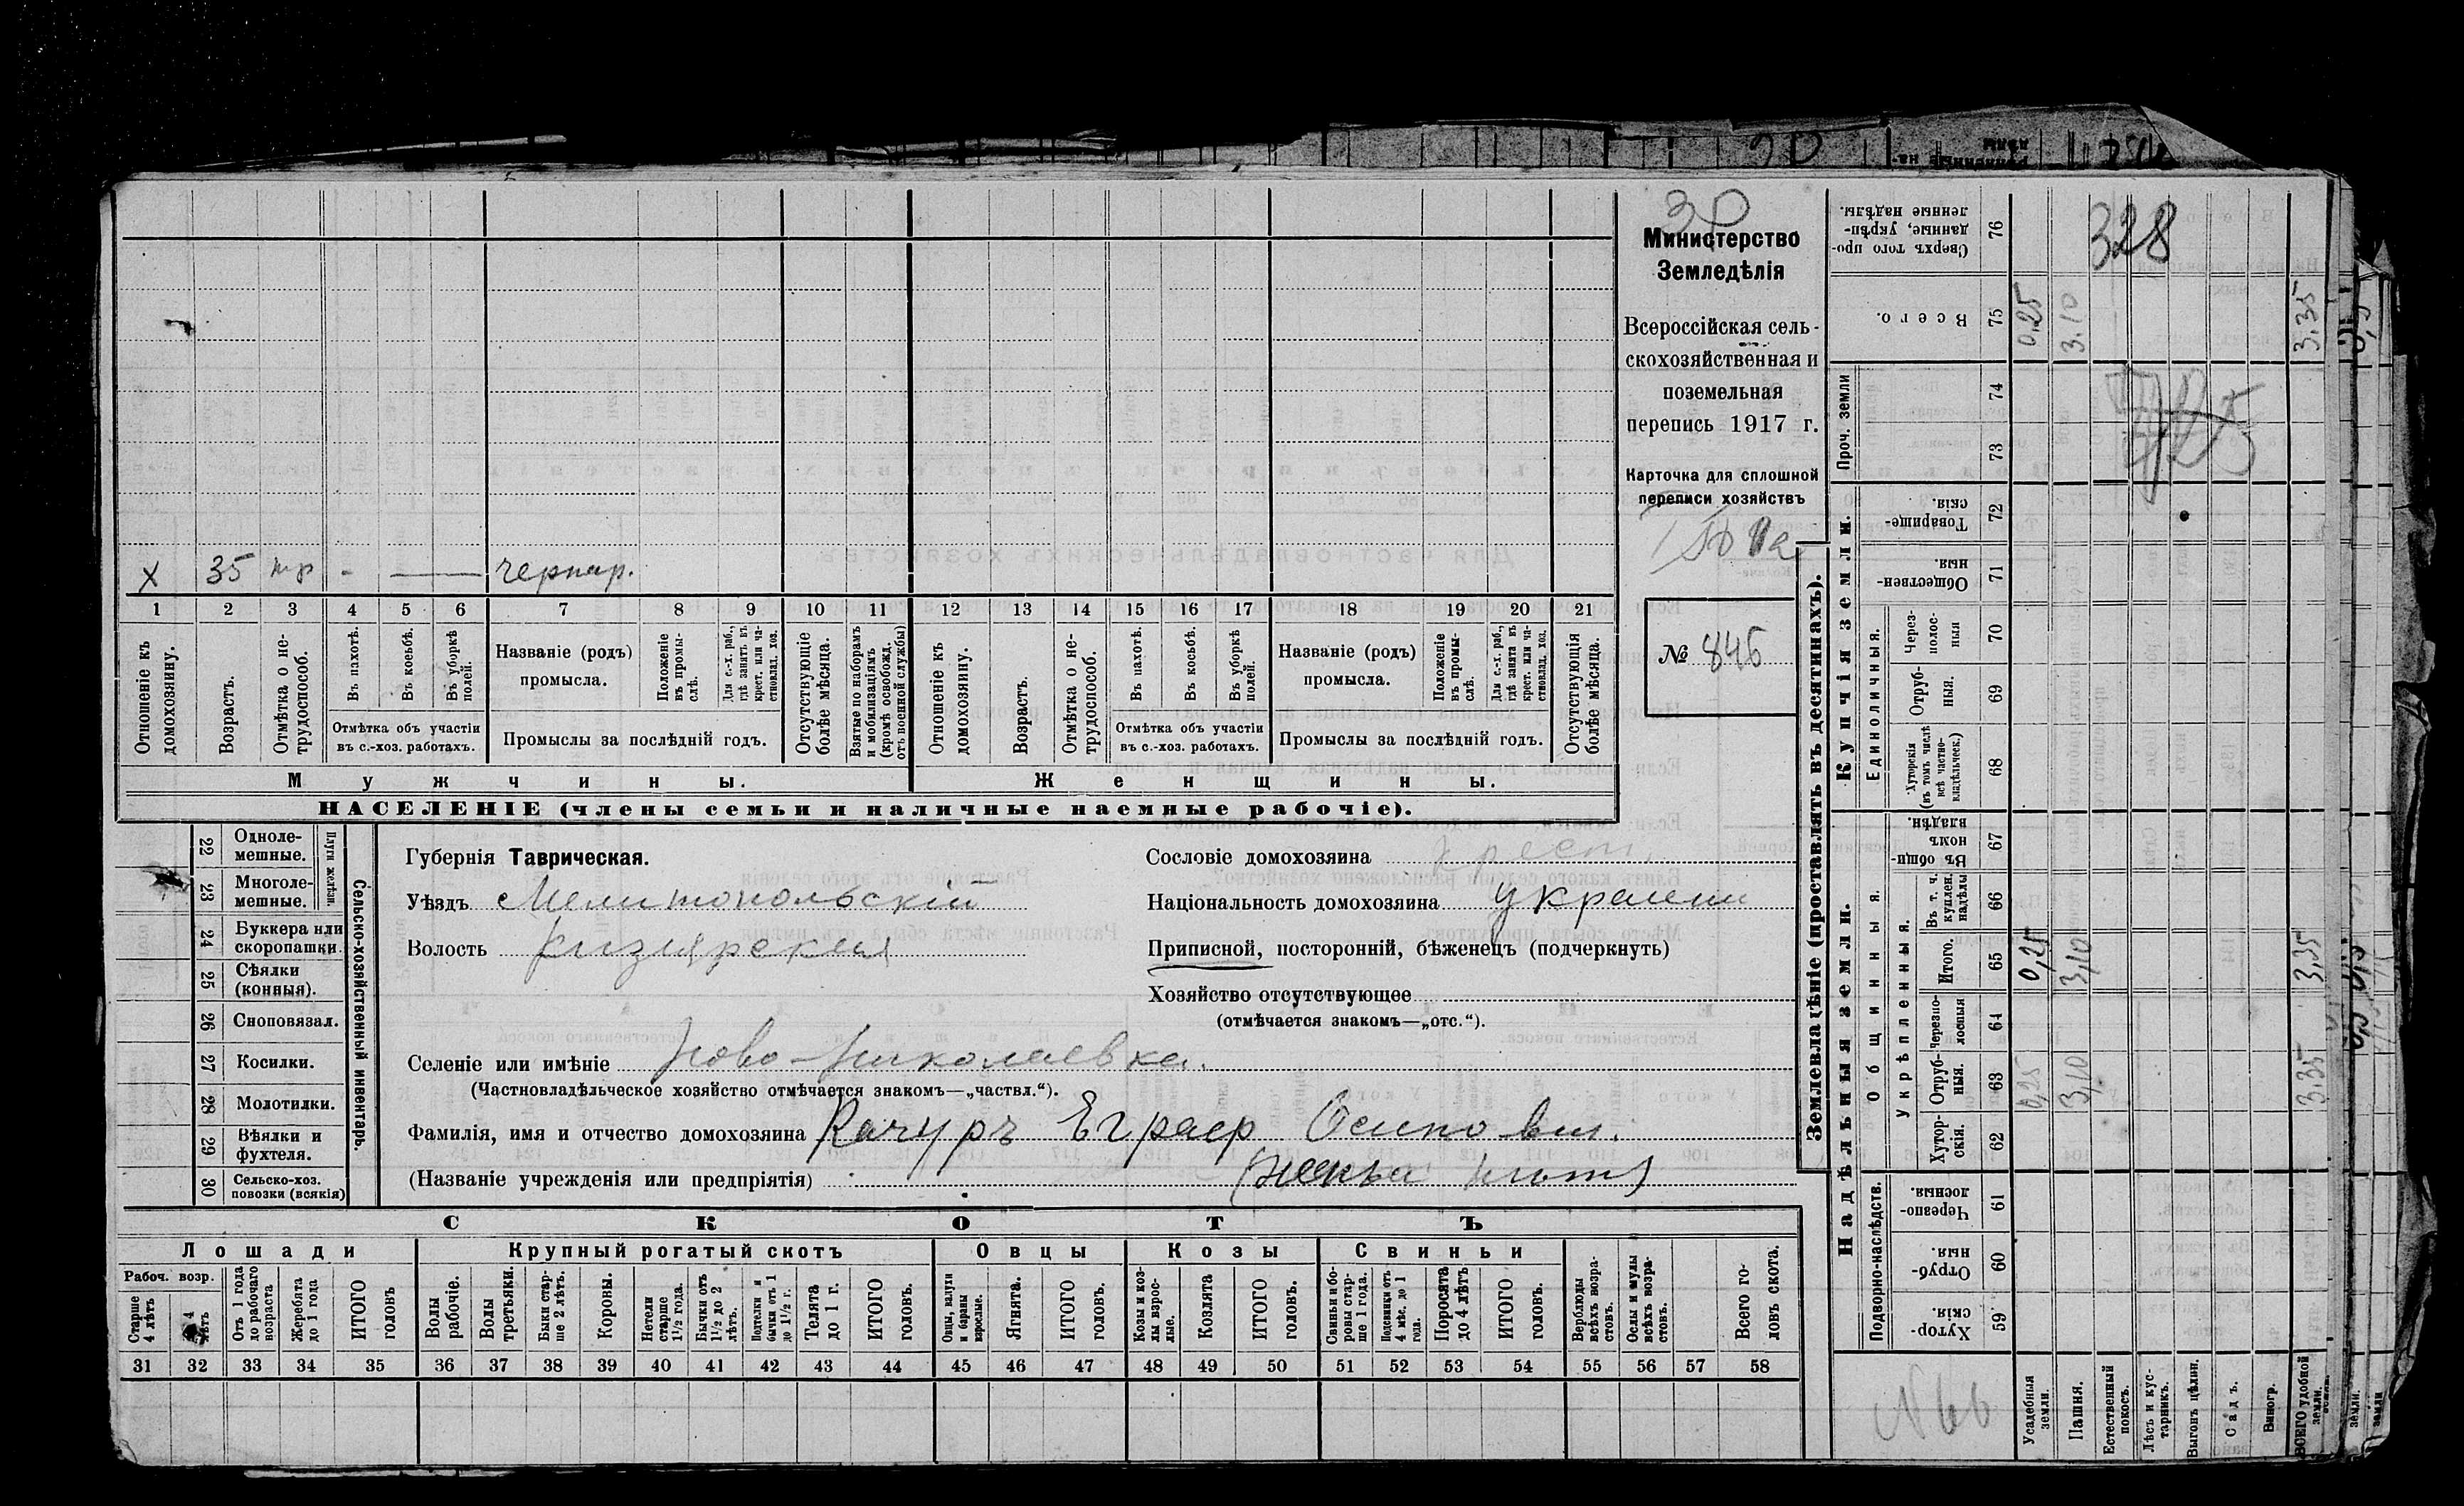 30
Министерство
Земледѣлія
Всероссійская сель-
скохозяйственная и
поземельная
перепись 1917 г.
Карточка для сплошной
переписи хозяйствъ
№ 846
х 35 тр - — чернор.
1 2 3 4 5 6 7 8 9 10 11 12 13 14 15 16 17 18 19 20 21
Отношеніе къ домохозяину.
Возрастъ.
Отмѣтка о не-трудоспособ.
Въ пахотѣ.
Въ косьбѣ.
Въ уборкѣ полей.
Отмѣтка объ участіи
въ с.-хоз. работахъ.
Названіе (родъ)
промысла.
Положеніе въ промы-слѣ.
Для с.-х. раб., гдѣ занятъ въ крест. или ча-стновлад. хоз.
Промыслы за послѣдній годъ.
Отсутствующіе болѣе мѣсяца.
Взятые по наборамъ и мобилизаціямъ (кромѣ освобожд. отъ военной службы)
Отношеніе къ домохозяину.
Возрастъ.
Отмѣтка о не-трудоспособ.
Въ пахотѣ.
Въ косьбѣ.
Въ уборкѣ полей.
Отмѣтка объ участіи
въ с.-хоз. работахъ.
Названіе (родъ)
промысла.
Положеніе въ промы-слѣ.
Для с.-х. раб., гдѣ занята въ крест. или ча-стновлад. хоз.
Промыслы за послѣдній годъ.
Отсутствующія болѣе мѣсяца.
Мужчины. Женщины.
НАСЕЛЕНІЕ (члены семьи и наличные наемные рабочіе).
22 Одноле-мешные.
23 Многоле-мешные.
Плуги желѣзн.
24 Буккера или скоропашки.
25 Сѣялки (конныя).
26 Сноповязал.
27 Косилки.
28 Молотилки.
29 Вѣялки и фухтеля.
30 Сельско-хоз. повозки (всякія)
Сельско-хозяйственный инвентарь.
Губернія Таврическая.
Уѣздъ Мелитопольскій
Волость Кизіярская
Сословіе домохозяина крест.
Національность домохозяина украин
Приписной, посторонній, бѣженецъ (подчеркнуть)
Хозяйство отсутствующее
(отмѣчается знакомъ—„отс.“).
Селеніе или имѣніе Ново-Николаевка.
(Частновладѣльческое хозяйство отмѣчается знакомъ—„частвл.“).
Фамилія, имя и отчество домохозяина Качуръ Еграф Осипович.
(Названіе учрежденія или предпріятія)
СКОТЪ
Лошади Крупный рогатый скотъ Овцы Козы Свиньи
Рабоч. возр.
Старше 4 лѣтъ
До 4 лѣтъ
Отъ 1 года до рабочаго возраста
Жеребята до 1 года
ИТОГО головъ
Волы рабочіе.
Волы третьяки.
Быки стар-ше 2 лѣтъ.
Коровы.
Нетели старше 1½ года.
Бычки отъ 1½ до 2 лѣтъ.
Подтелки и бычки отъ 1 до 1½ г.
Телята до 1 г.
ИТОГО головъ.
Овцы, валухи и бараны взрослые.
Ягнята.
ИТОГО головъ.
Козы и коз-лы взрос-лые.
Козлята
ИТОГО головъ.
Свиньи и бо-ровы стар-ше 1 года.
Подсвинки отъ 4 мѣс. до 1 года.
Поросята до 4 лѣтъ
ИТОГО головъ.
Верблюды всѣхъ возра-стовъ.
Ослы и мулы всѣхъ возра-стовъ.
Всего го-ловъ скота.
31 32 33 34 35 36 37 38 39 40 41 42 43 44 45 46 47 48 49 50 51 52 53 54 55 56 57 58
Землевладѣніе (проставлять въ десятинахъ).
Купчія земли.
Надѣльныя земли.
328
Сверхъ того про-данные, укрѣп-ленные надѣлы. 76
Всего. 75 0,25 3.10 3.35
Проч. земли 74
73
Товарище-скія. 72
Обществен-ныя. 71
Единоличныя.
Через-полос-ныя 70
Отруб-ныя. 69
Хуторскія (въ томъ числѣ всѣ частно-владѣльческ.) 68
Общинныя.
Въ общин-номъ владѣн. 67
Укрѣпленныя.
Въ т. ч. куплен. надѣлы 66
Итого. 65 0,25 3,10 3,35
Черезпо-лосныя 64
Отруб-ныя. 63 0,25 3,10 3.35
Хутор-скія. 62
Подворно-наслѣдств.
Черезпо-лосныя. 61
Отруб-ныя. 60
Хутор-скія. 59
Усадебныя земли.
Пашня.
Естественный покосъ.
Лѣсъ и кус-тарникъ.
Выгонъ цѣлин.
Садъ.
Виногр.
ВСЕГО удобной земли.